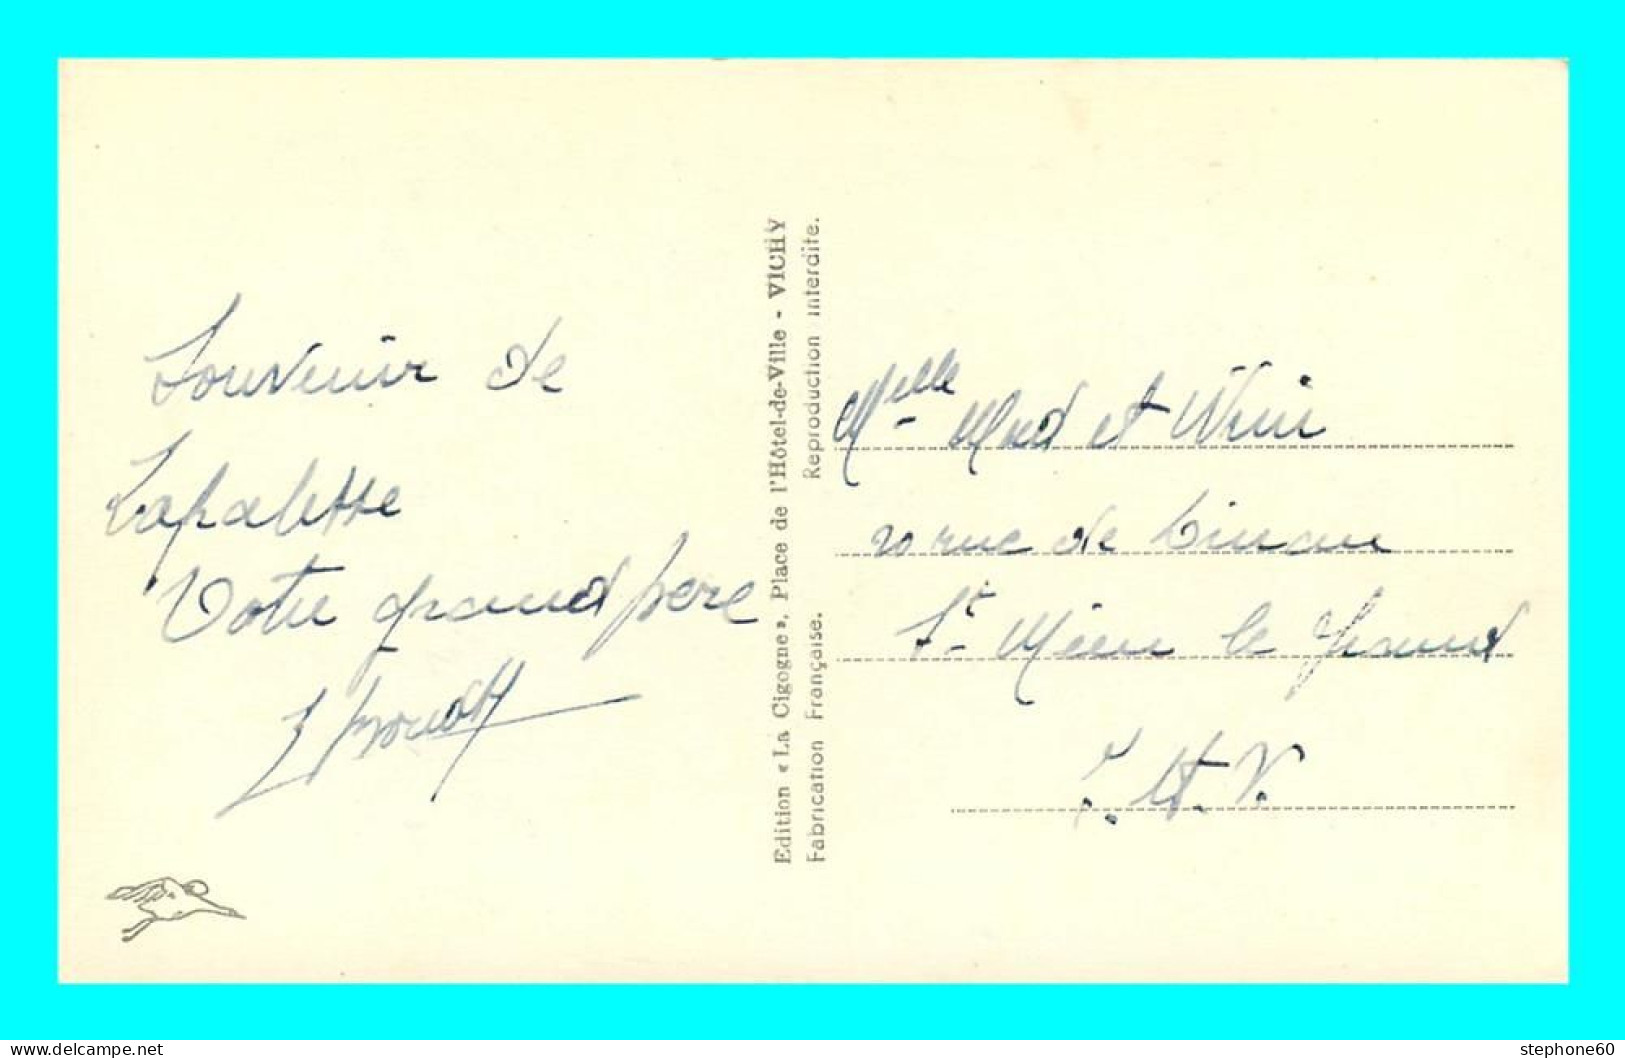 Souvenir de
Lapalisse
Votre grand père
Edition « La Cigogne », Place de l'Hôtel-de-Ville - VICHY
Fabrication Française. Reproduction interdite.
Melle et
20 rue de Dinan
St Méen le Grand
I. et V.
www.delcampe.net
stephone60